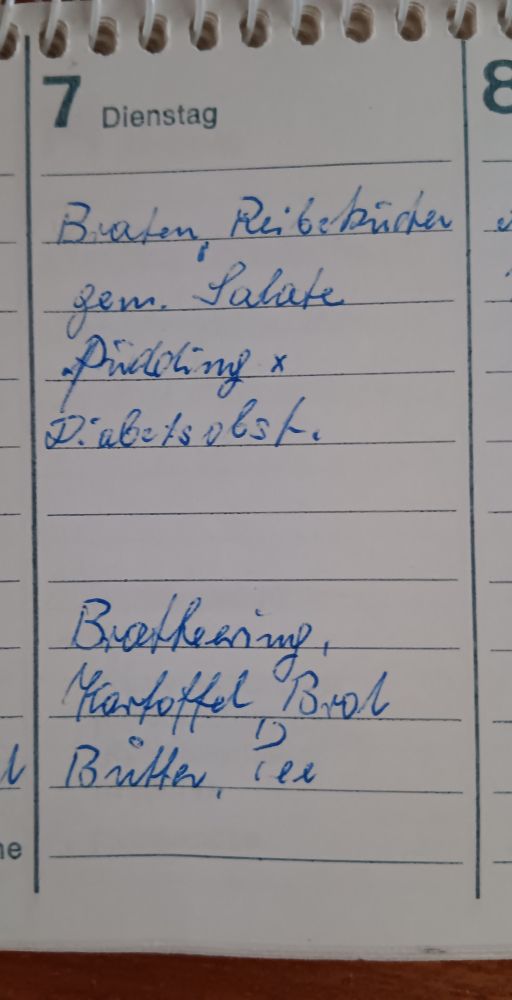 7 Dienstag 8
Braten, Reibekuchen
gem. Salate
Pudding x
Diabetsobst.
Brathering,
Kartoffel, Brot
Butter, Tee